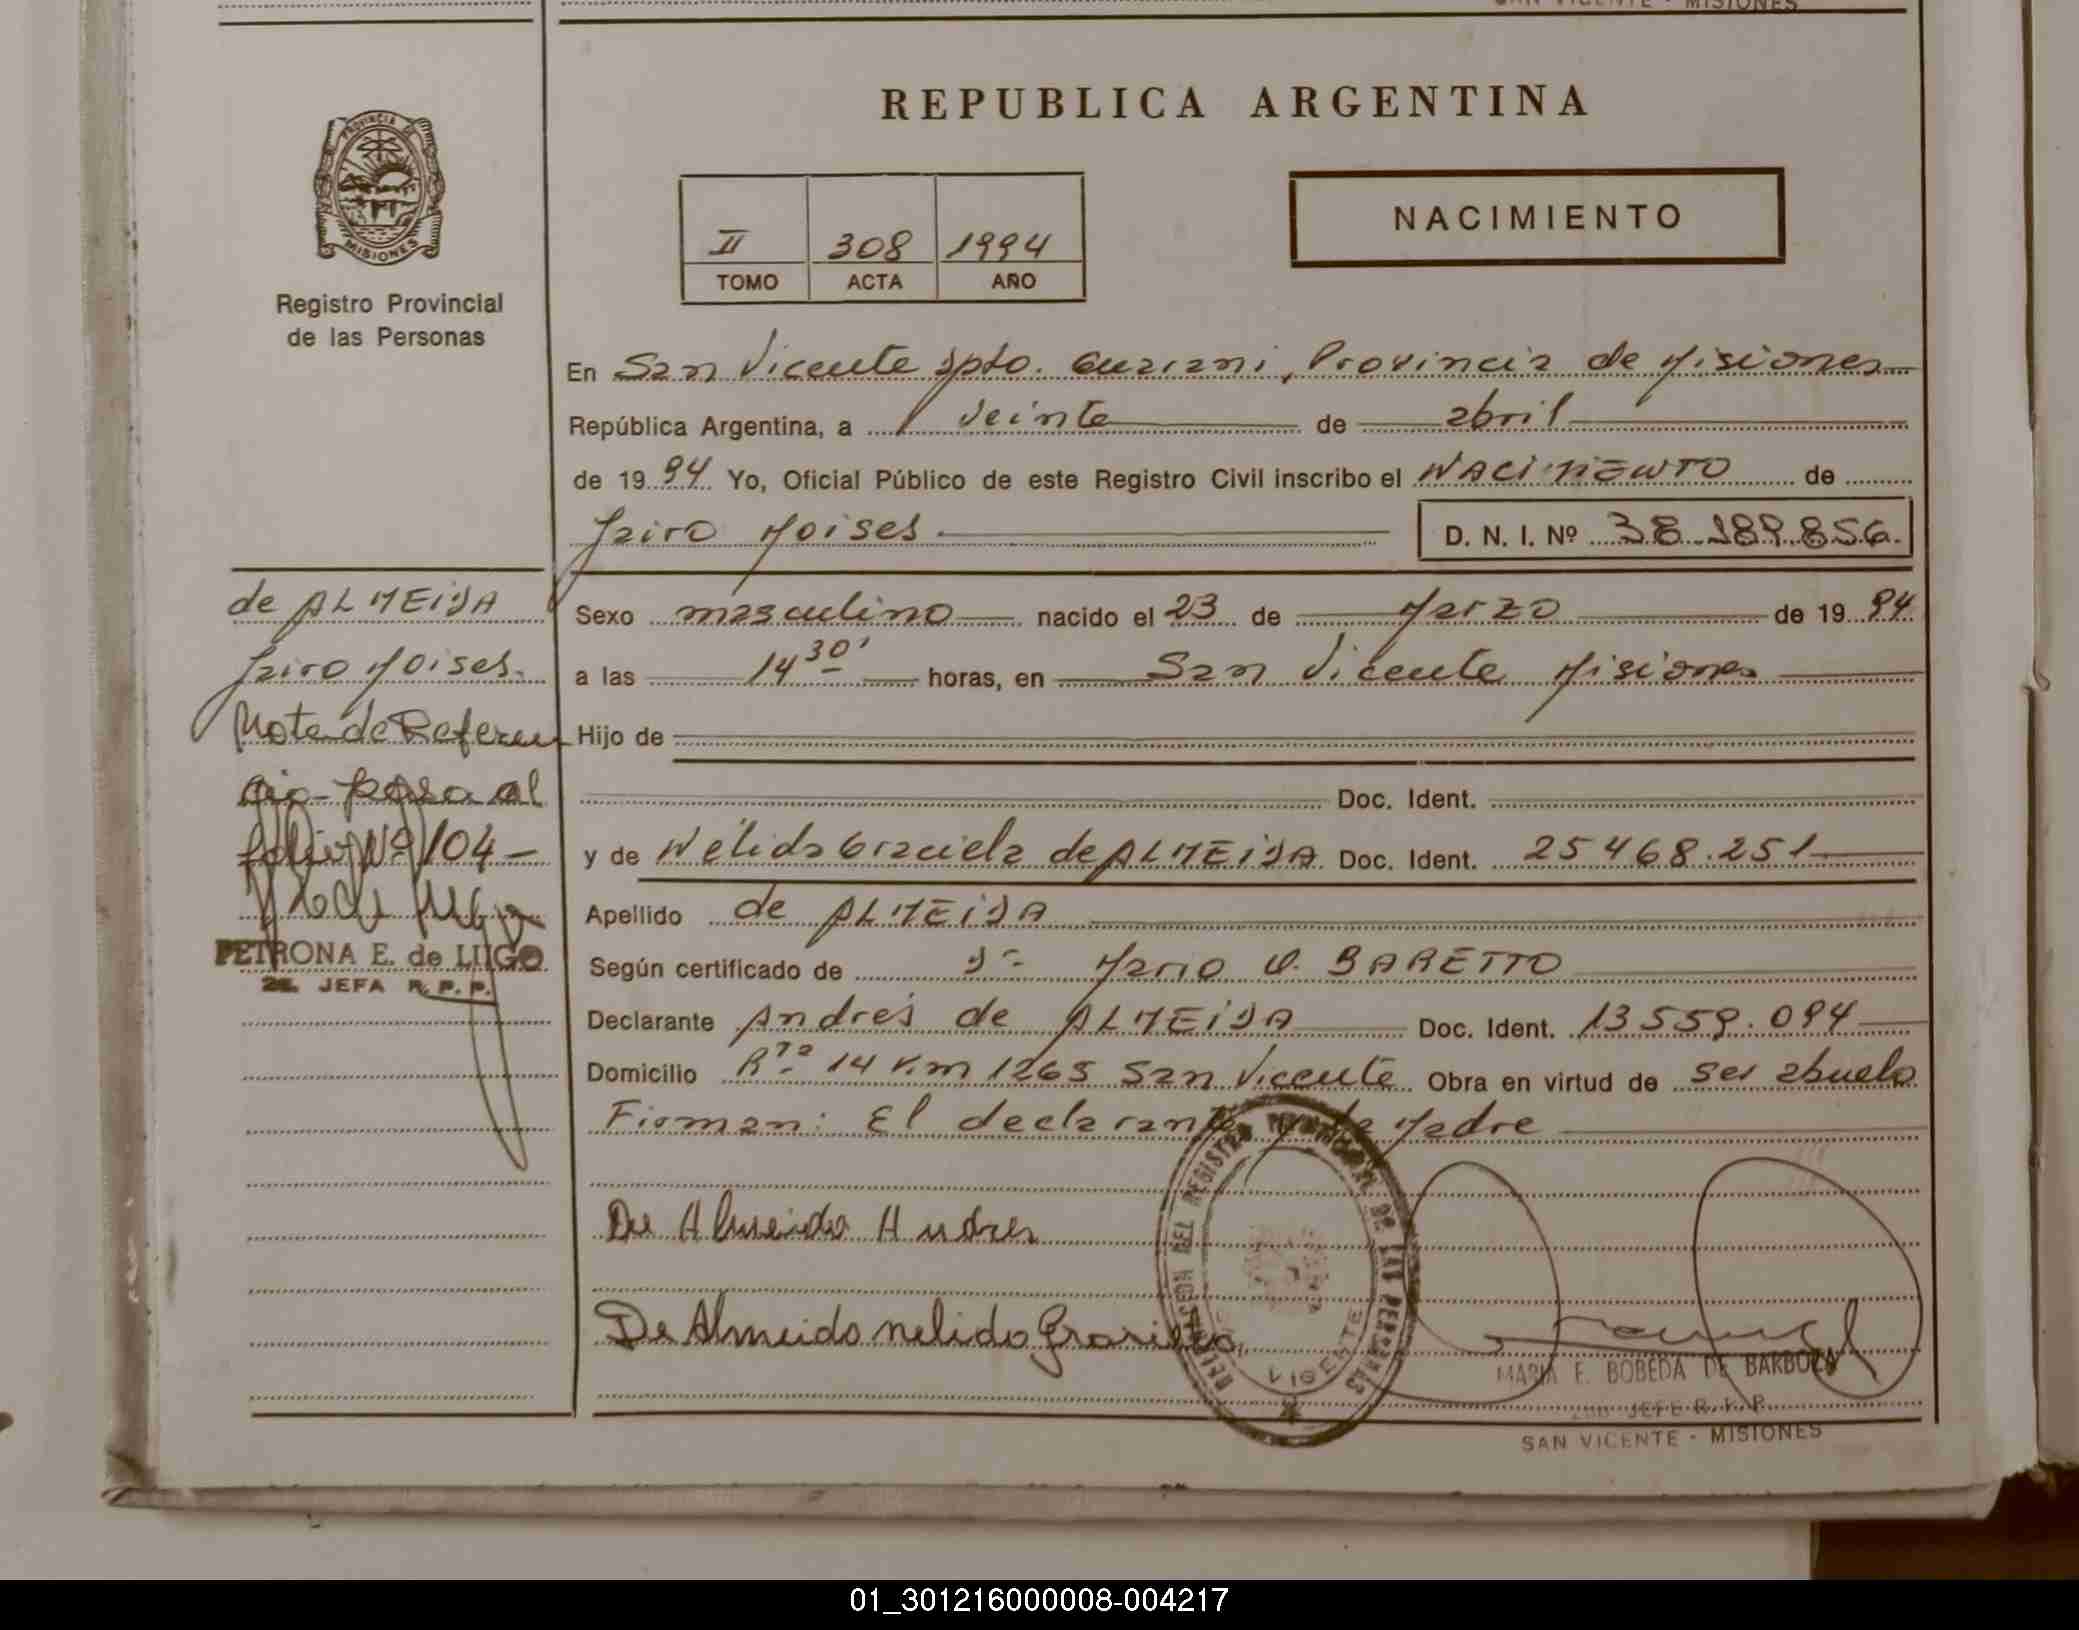 SAN VICENTE - MISIONES
PROVINCIA DE
MISIONES
Registro Provincial
de las Personas
REPUBLICA ARGENTINA
II 308 1994
TOMO ACTA AÑO
NACIMIENTO
En San Vicente Dpto. Guarani, Provincia de Misiones
República Argentina, a veinte de abril
de 1994 Yo, Oficial Público de este Registro Civil inscribo el NACIMIENTO de
Jairo Moises D. N. I. Nº 38.189.856.
de ALMEIDA
Jairo Moises.
Nota de Referen
cia - pasa al
folio Nº 104 -
PETRONA E. de LUGO
JEFA R. P. P.
Sexo masculino nacido el 23 de Marzo de 1994
a las 14 30' horas, en San Vicente Misiones
Hijo de
Doc. Ident.
y de Nélida Graciela de ALMEIDA Doc. Ident. 25468.251
Apellido de ALMEIDA
Según certificado de Dr Mario V. BARETTO
Declarante Andrés de ALMEIDA Doc. Ident. 13559.094
Domicilio Rta 14 Km 1265 San Vicente Obra en virtud de ser abuelo
Firman: El declarante y la Madre
De Almeida Andres
De Almeida nelida Grasiela
MARIA E. BOBEDA DE BARBOZA
JEFE R. P. P.
SAN VICENTE - MISIONES
01_301216000008-004217